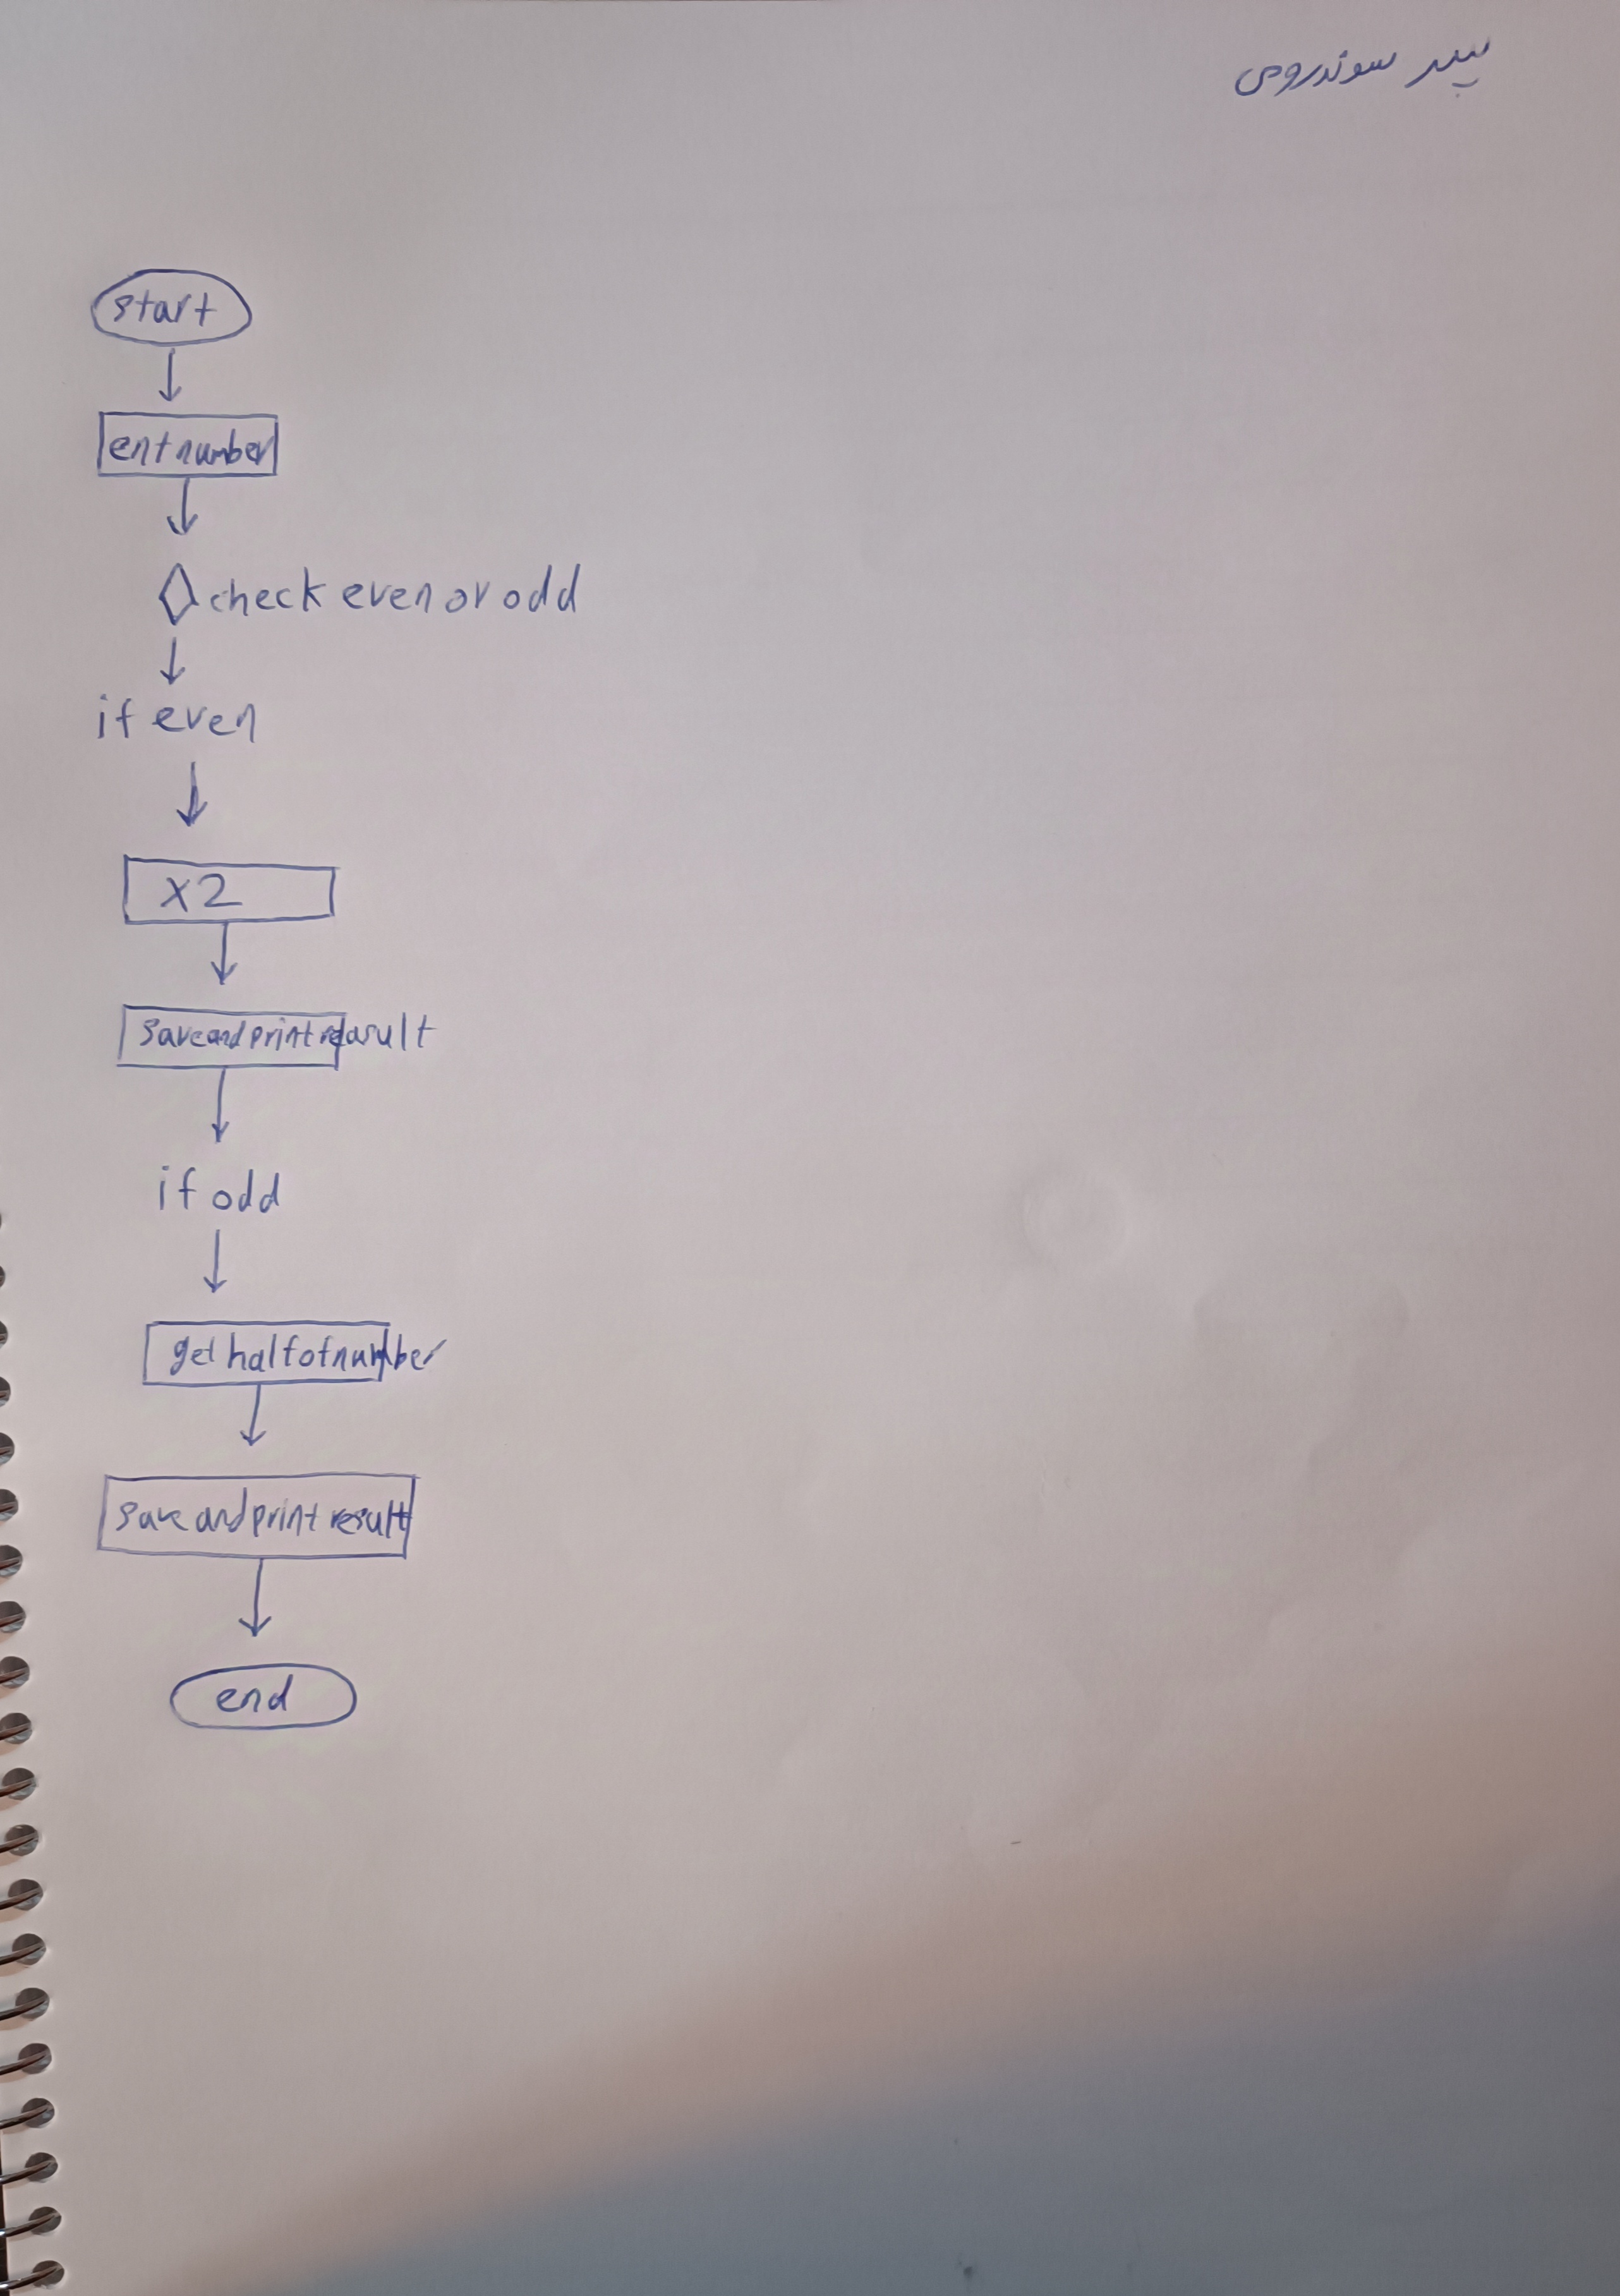 سوندرومی
start
ent number
check even or odd
if even
x2
save and print result
if odd
get half of number
save and print result
end